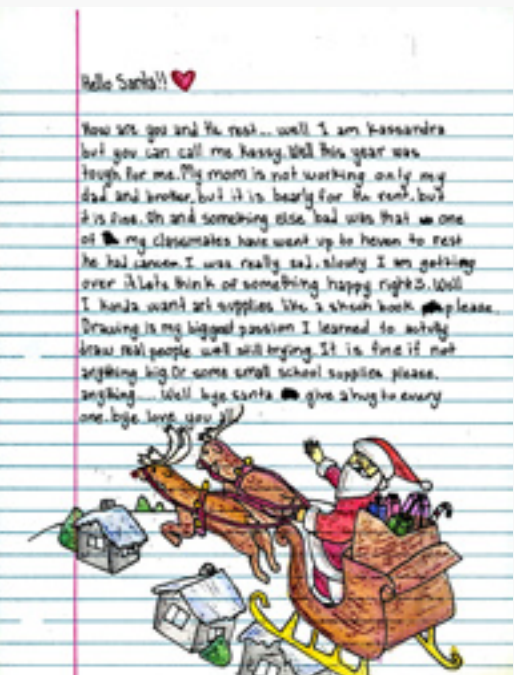 Hello Santa!!
How are you and the rest... well I am Kassandra
but you can call me Kassy. Well this year was
tough for me. My mom is not working only my
dad and brother, but it is bearly for the rent, but
it is fine. Oh and something else bad was that one
of my classmates have went up to heven to rest
he had cancer. I was really sad, slowly I am getting
over it. Lets think of something happy right. Well
I kinda want art supplies like a book please.
Drawing is my biggest passion I learned to
draw real people well still trying. It is fine if not
anything big. Or some small school supplies please,
anything.... Well bye santa give a hug to every
one. bye love you all